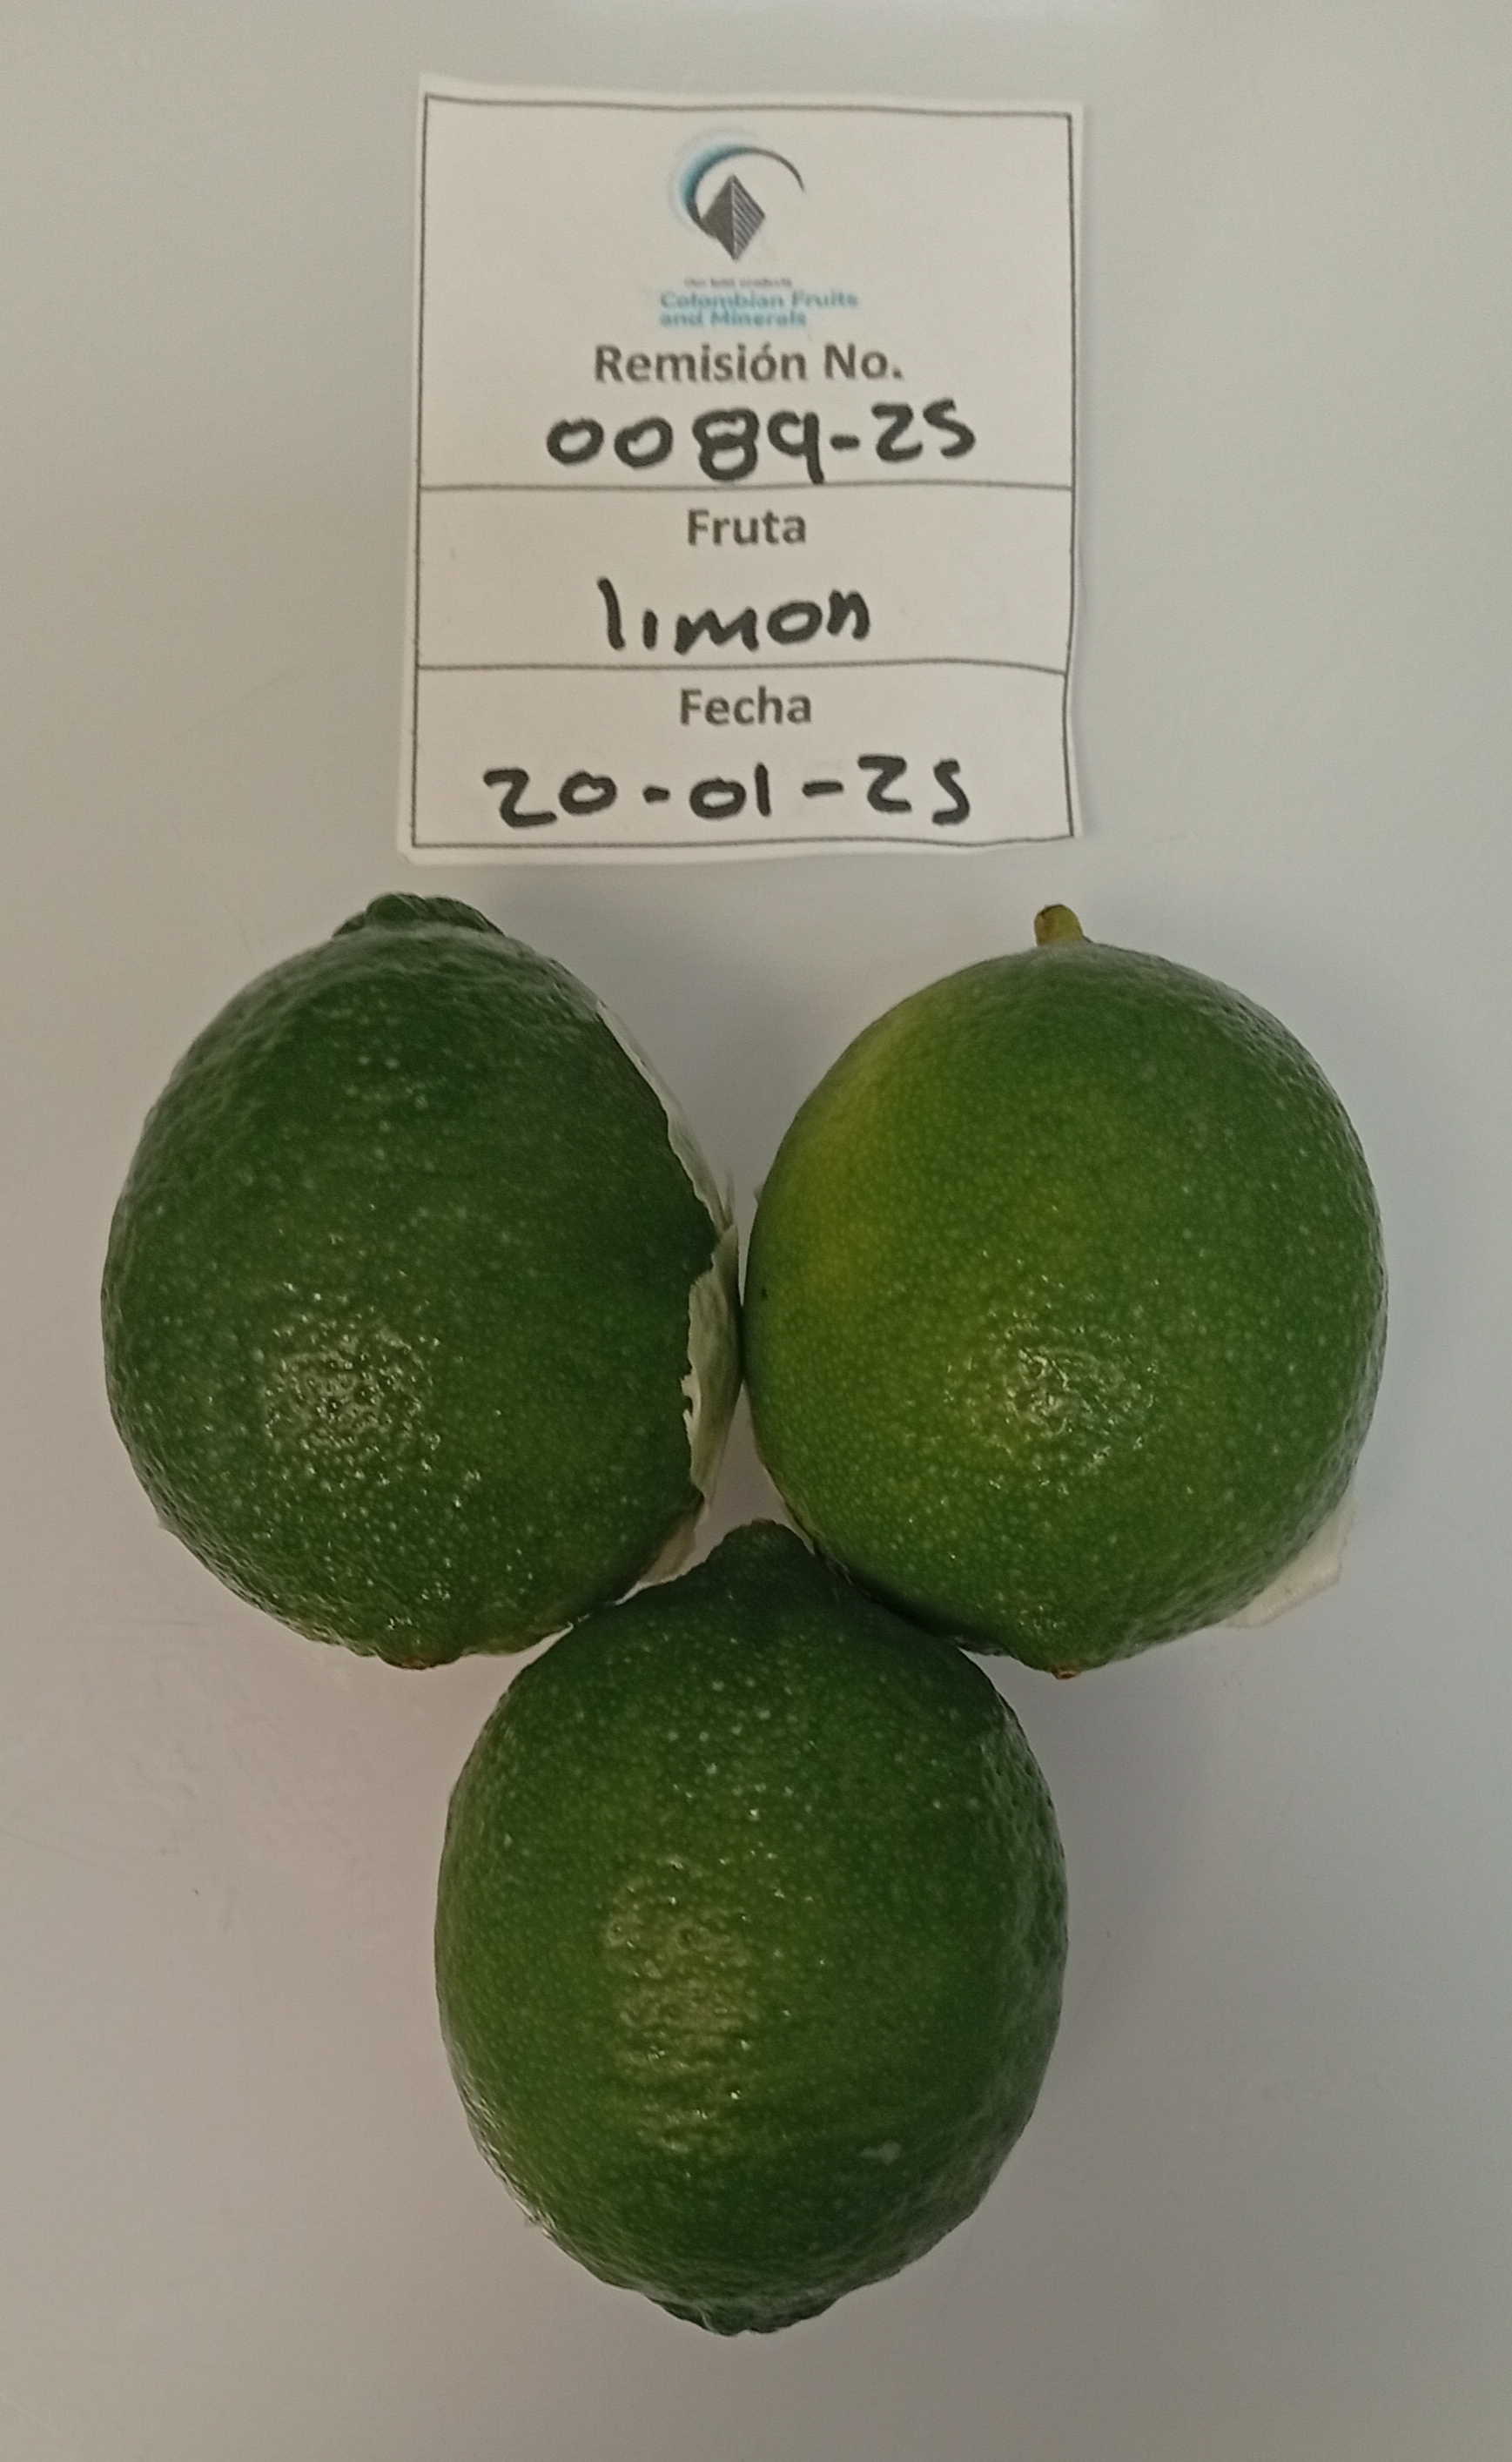 Our best products
Colombian Fruits
and Minerals
Remisión No.
0089-25
Fruta
limon
Fecha
20-01-25